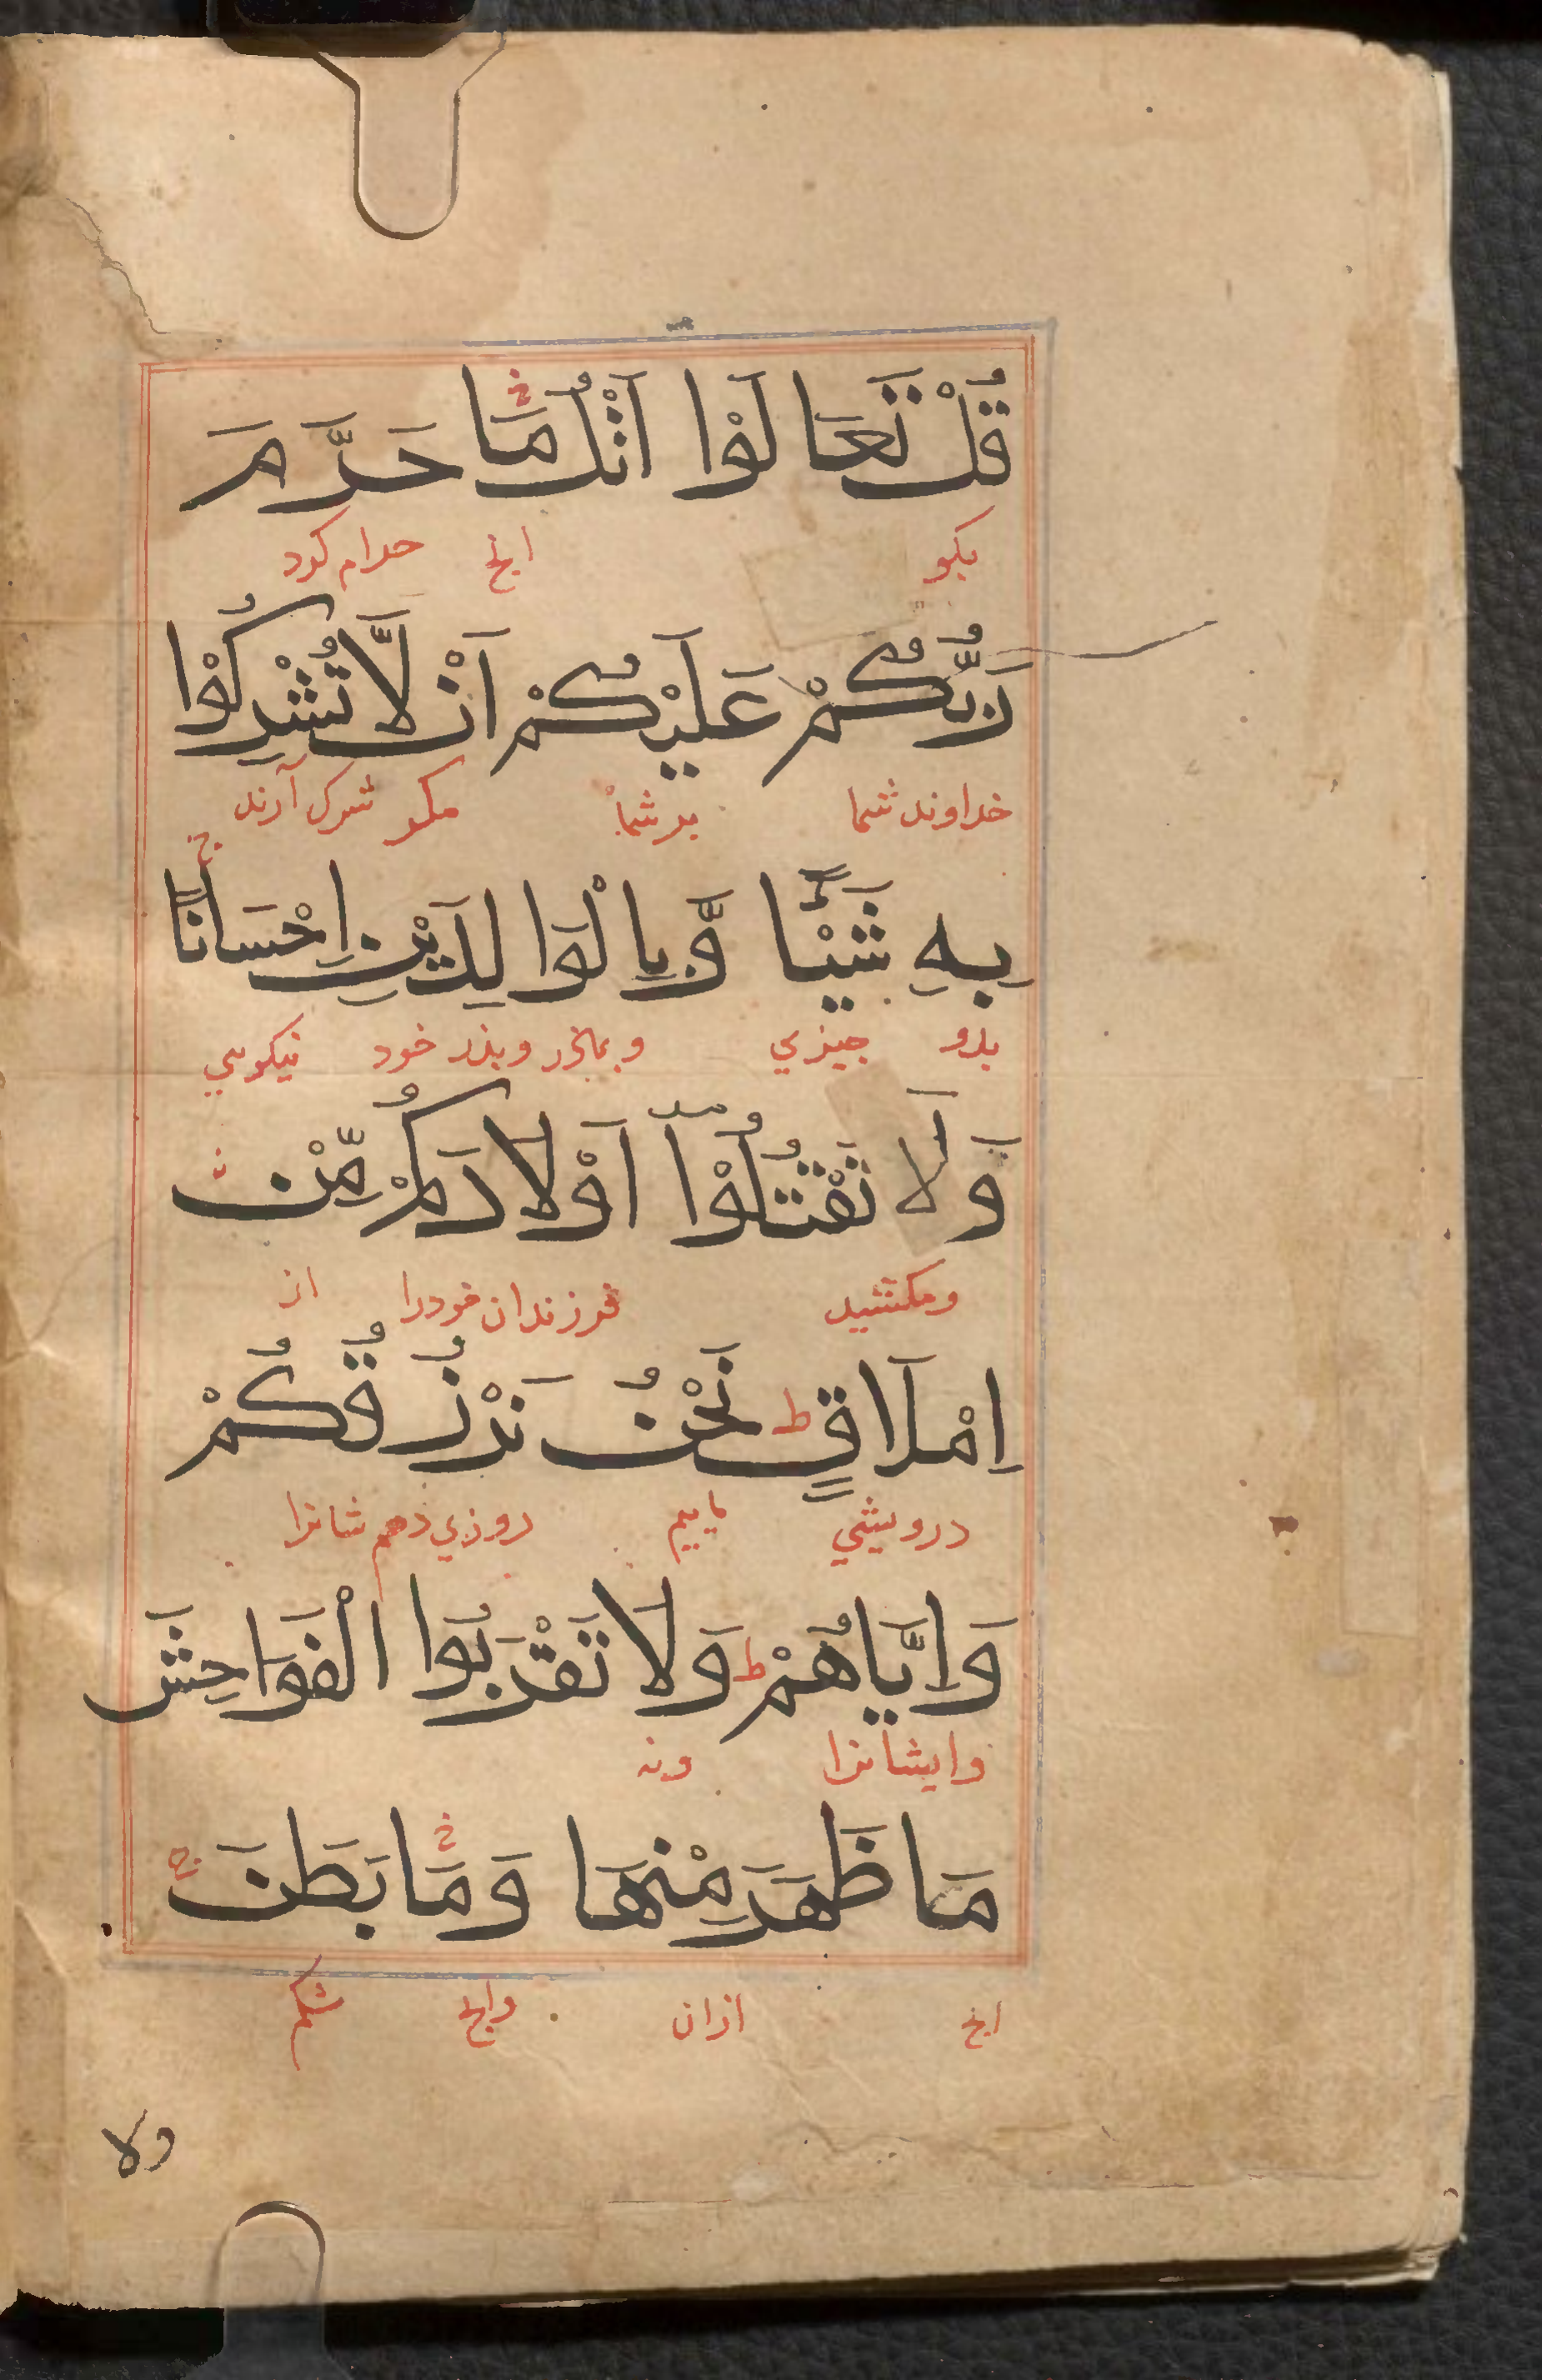 قُلْ تَعَالَوْا اَتْلُ مَا حَرَّمَ
بكو انچ حرام كرد
رَبُّكُمْ عَلَيْكُمْ اَنْ لَّا تُشْرِكُوْا
خداوند شما بر شما مكر شرك آرند
بِهِ شَيْئًا وَّبِالْوَالِدَيْنِ اِحْسَانًا
بدو چيزي وبمادر وپدر خود نيكويي
وَلَا تَقْتُلُوْآ اَوْلَادَكُمْ مِّنْ
ومكشيد فرزندان خودرا از
اِمْلَاقٍ ط نَحْنُ نَرْزُقُكُمْ
درويشي ماييم روزي دهم شمانرا
وَاِيَّاهُمْ ط وَلَا تَقْرَبُوا الْفَوَاحِشَ
وايشانرا ونه
مَا ظَهَرَ مِنْهَا وَمَا بَطَنَ ج
انچ ازان وانچ شكم
ولا